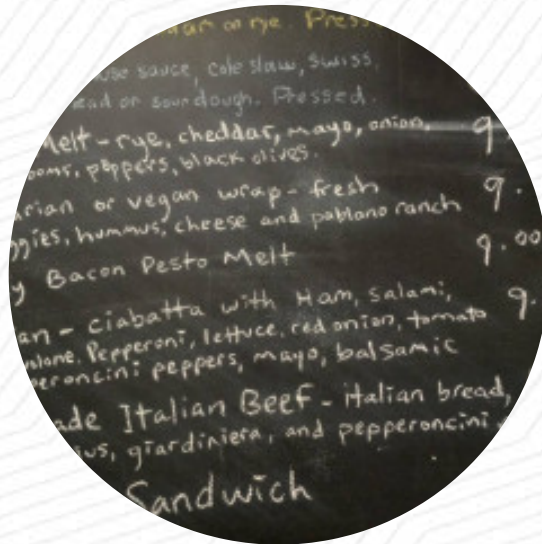 on rye. Press
sauce, cole slaw, swiss,
or sourdough. Pressed.
Melt - rye, cheddar, mayo, onion, 9
peppers, black olives.
or vegan wrap - fresh 9.
hummus, cheese and pablano ranch
Bacon Pesto Melt 9.00
- ciabatta with Ham, salami, 9.
Pepperoni, lettuce, red onion, tomato
peppers, mayo, balsamic
Italian Beef - italian bread,
giardiniera, and pepperoncini
Sandwich